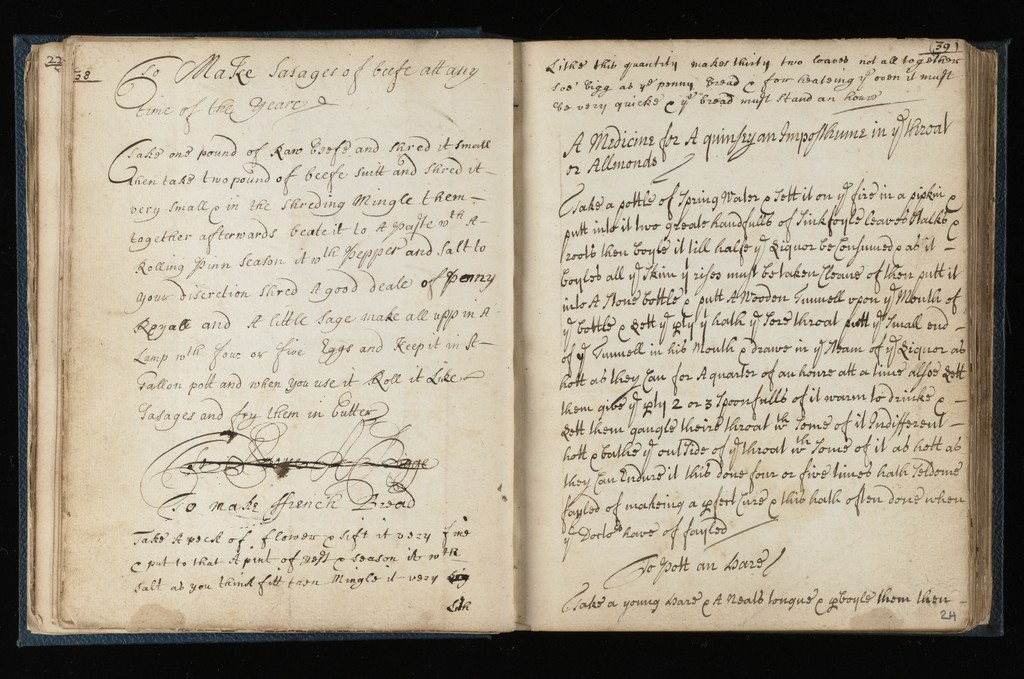 22
38
To Make Sasages of beefe att any
time of the Yeare
Take one pound of Raw beefe and shred it small
then take two pound of beefe suitt and shred it
very small & in the shreding Mingle them
together afterwards beate it to A paste wth A
Rolling Pinn season it wth Pepper and salt to
your discretion shred A good deale of Penny
Royall and A little sage make all upp in A
Lump wth four or five Eggs and Keep it in A
Gallon pott and when you use it Roll it Like
Sasages and fry them in butter
To make ffrench Bread
Take A peck of flower & sift it very fine
& put to that A pint of yest & season it wth
salt as you think fitt then Mingle it very
Lith
(39)
Lithe this quantity makes thirty two loaves not all together
soe bigg as ye penny Bread & for heateing ye oven it must
be very quicke & ye bread must stand an houre
A Medicine for A quinsey an Imposthume in ye throat
or Allmonds
Take a pottle of Spring Water & sett it on ye fire in a pipkin &
putt into it two greate handfulls of Sinkfoyle leaves stalks &
roots then boyle it till halfe ye Liquor be Consumed & as it
boyles all ye skim yt rises must be taken Cleane of then putt it
into A stone bottle & putt A Wooden Tunnell upon ye Mouth of
ye bottle & Lett ye pty yt hath ye sore throat putt ye small end
of ye Tunnell in his Mouth & drawe in ye steam of ye Liquor as
hott as they Can for A quarter of an houre att a time allsoe Lett
them give ye pty 2 or 3 spoonfulls of it warm to drinke &
Lett them gargle theire throat wth some of it Indifferent
hott & bathe ye outside of ye throat wth some of it as hott as
they Can Endure it this done four or five times hath seldome
fayled of makeing a pfect Cure & this hath often done when
ye Doctors have of fayled
To Pott an Hare
Take a young Hare & A Neats tongue & pboyle them then
24